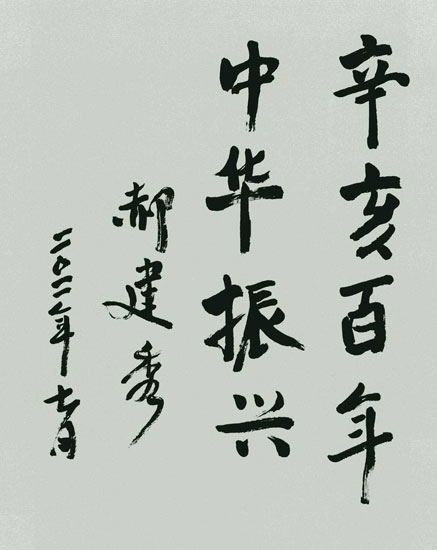 辛亥百年
中华振兴
郝建秀
二〇一一年七月